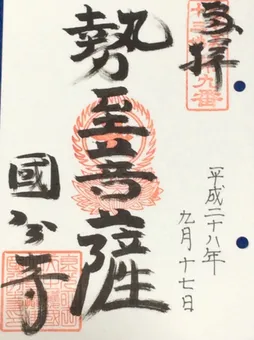 奉拝
平成二十八年
九月十七日
勢至菩薩
國分寺